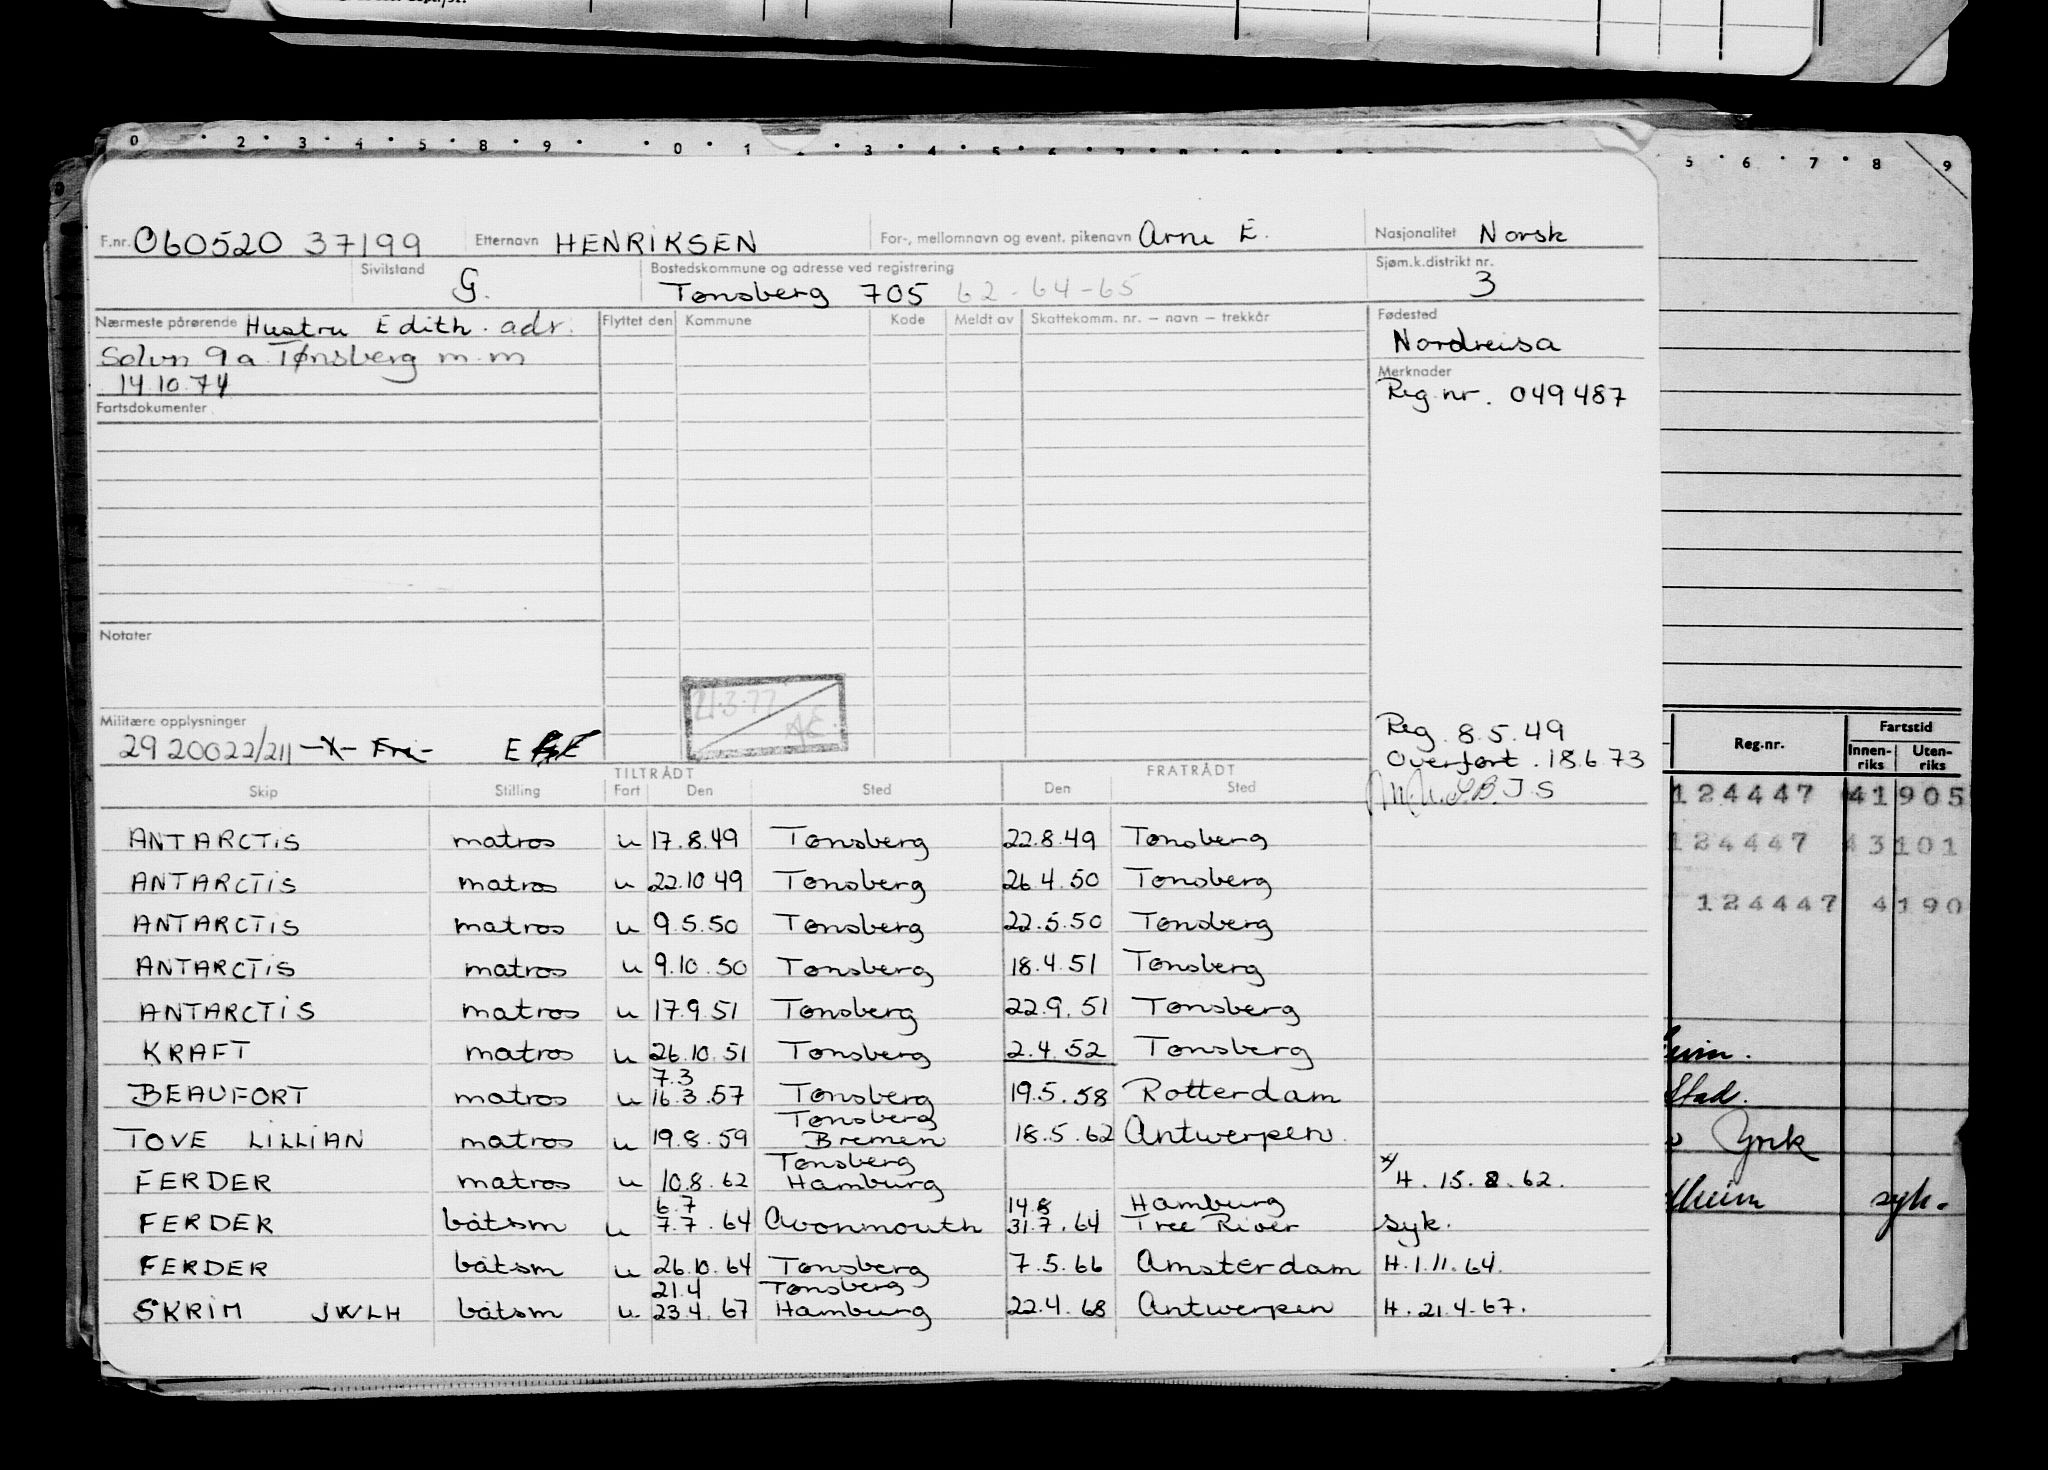 0 · 2 · 3 · 4 · 5 · 8 · 9 · · 0 · 1 3 · 4 · 5 6 7 8 9
5 · 6 · 7 · 8 9
F.nr. 060520 37199 Etternavn HENRIKSEN For-, mellomnavn og event. pikenavn Arne E. Nasjonalitet Norsk
Sivilstand G. Bostedskommune og adresse ved registrering Tønsberg 705 62-64-65 Sjøm.k.distrikt nr. 3
Nærmeste pårørende Hustru Edith. adr. Flyttet den Kommune Kode Meldt av Skattekomm. nr. – navn – trekkår Fødested
Solvn 9a Tønsberg m.m Nordreisa
14.10.74 Merknader
Fartsdokumenter Reg.nr. 049487
Notater
21.3.77
Militære opplysninger Reg. 8.5.49
29 20022/211 -X- Fri- E Overført. 18.6.73
J.S
TILTRÅDT FRATRÅDT
Skip Stilling Fart Den Sted Den Sted
ANTARCTIS matros u 17.8.49 Tønsberg 22.8.49 Tønsberg
ANTARCTIS matros u 22.10.49 Tønsberg 26.4.50 Tønsberg
ANTARCTIS matros u 9.5.50 Tønsberg 22.5.50 Tønsberg
ANTARCTIS matros u 9.10.50 Tønsberg 18.4.51 Tønsberg
ANTARCTIS matros u 17.9.51 Tønsberg 22.9.51 Tønsberg
KRAFT matros u 26.10.51 Tønsberg 2.4.52 Tønsberg
7.3
BEAUFORT matros u 16.3.57 Tønsberg 19.5.58 Rotterdam
Tønsberg
TOVE LILLIAN matros u 19.8.59 Bremen 18.5.62 Antwerpen
Tønsberg
FERDER matros u 10.8.62 Hamburg x/ H. 15.8.62.
6.7 14.8 Hamburg
FERDER båtsm u 7.7.64 Avonmouth 31.7.64 Tree River syk.
FERDER båtsm u 26.10.64 Tønsberg 7.5.66 Amsterdam H.1.11.64.
21.4 Tønsberg
SKRIM JWLH båtsm u 23.4.67 Hamburg 22.4.68 Antwerpen H. 21.4.67.
Reg.nr. Fartstid
Innen-riks Uten-riks
124447 41905
124447 43101
124447 4190
York
syk.